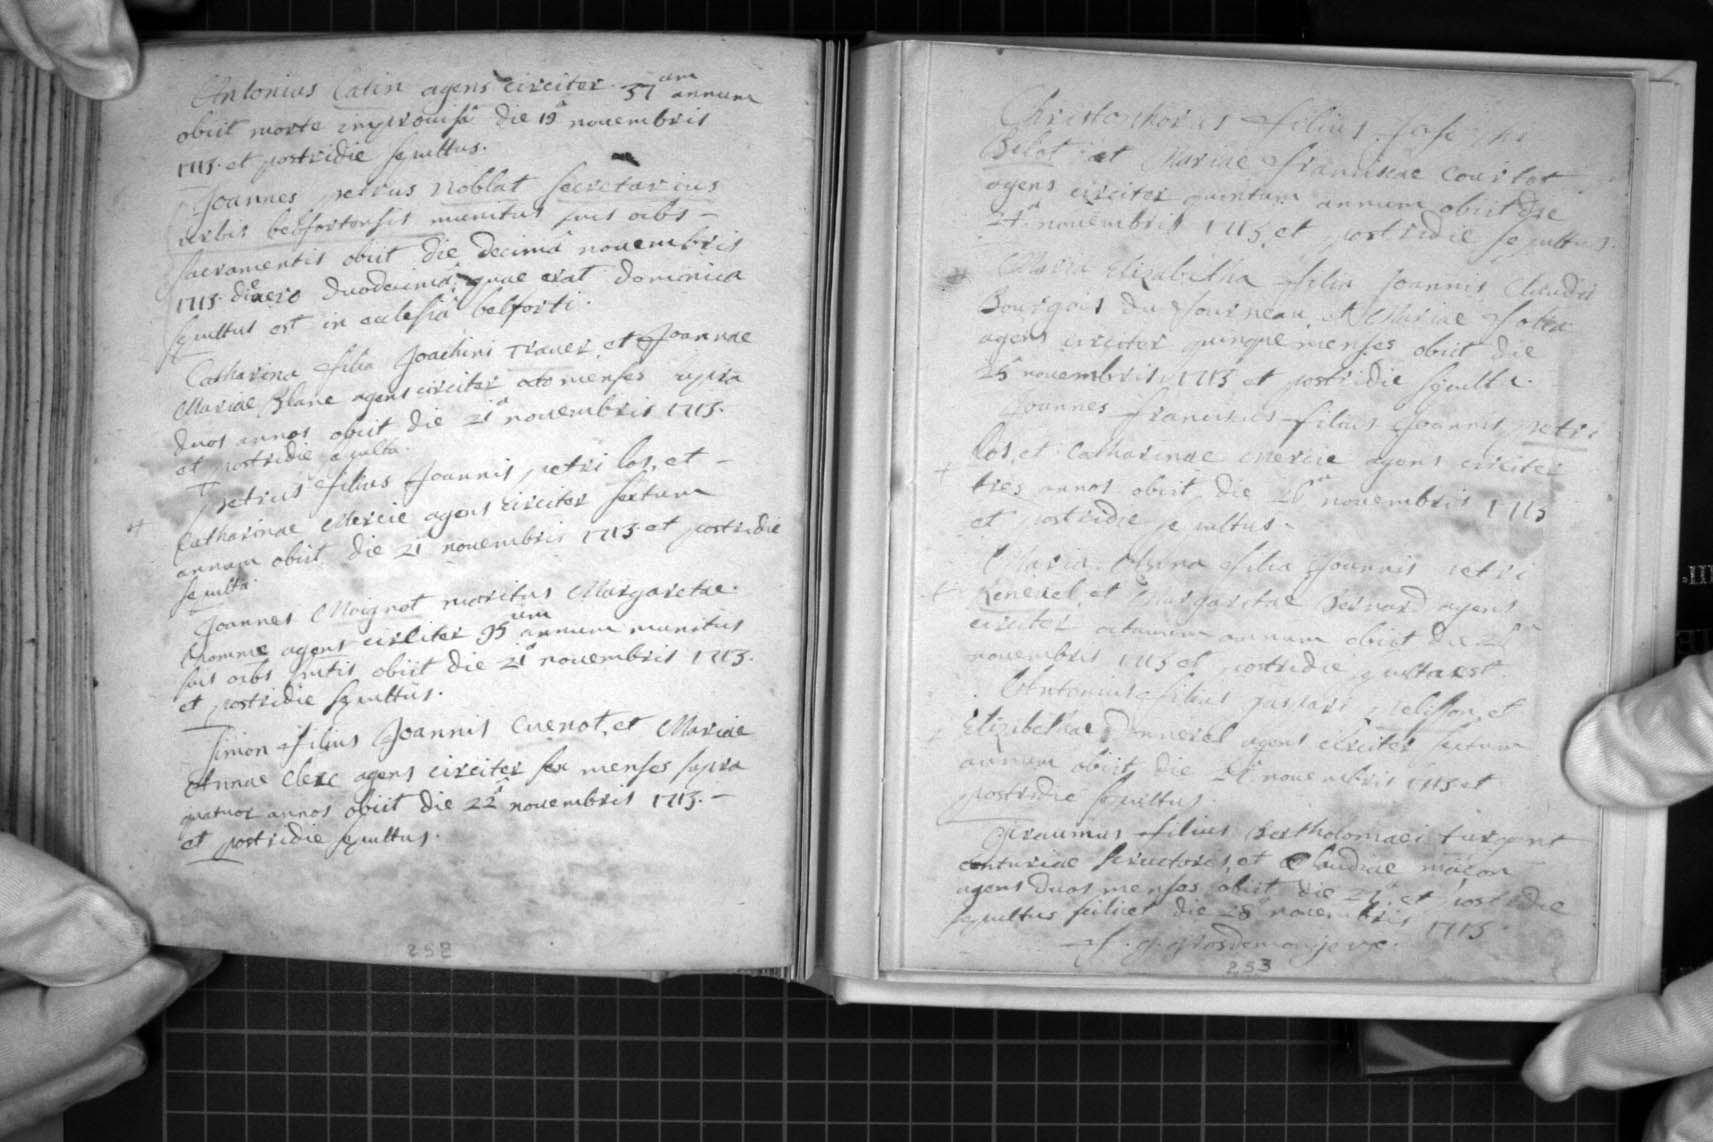 Antonius Catin agens circiter 57 um annum
obiit morte improuisâ die 19â nouembris
1713. et postridie sepultus.
Joannes petrus Noblat secretarius
urbis belfortensis munitus suis orbs -
sacramentis obiit die decimâ nouembris
1713. die uero duodecimâ, quae erat dominica
sepultus est in ecclesiâ belforti.
Catharina filia Joachimi Trauer, et Joannae
Mariae Blanc agens circiter octo menses supra
duos annos obiit die 21â nouembris 1713.
et postridie sepulta.
petrus filius Joannis petri los, et -
Catharinae Mercie agens circiter sextum
annum obiit die 21 nouembris 1713. et postridie
sepulta.
Joannes Moignot maritus Margaretae
pomme agens circiter 95 um annum munitus
suis orbs sntis obiit die 21â nouembris 1713.
et postridie sepultus.
Simon filius Joannis Cuenot, et Mariae
Annae Clerc agens circiter sex menses supra
quatuor annos obiit die 22â nouembris 1713. -
et postridie sepultus.
252
Christophorus filius Josephi
Belot et Mariae Franciscae Courtot
agens circiter quintum annum obiit die
24â nouembris 1713. et postridie sepultus.
Maria Elizabetha filia Joannis Claudii
Bourgois du fourneau, et Mariae
agens circiter quinque menses obiit die
25 nouembris 1713 et postridie sepulta.
Joannes franciscus filius Joannis petri
los, et Catharinae Mercie agens circiter
tres annos obiit die 26â nouembris 1713
et postridie sepultus -
Maria filia Joannis petri
et Margaritae bernard agens
circiter octauum annum obiit die
nouembris 1713 et postridie sepulta est.
Antonius filius gaspari pelisson, et
Elizabethae Donnerel agens circiter sextum
annum obiit die nouembris 1713 et
postridie sepultus.
filius bertholomaei
centuriae structoris, et Claudiae maçon
agens duos menses obiit die 27â et postridie
sepultus scilicet die 28â nouembris 1713.
253